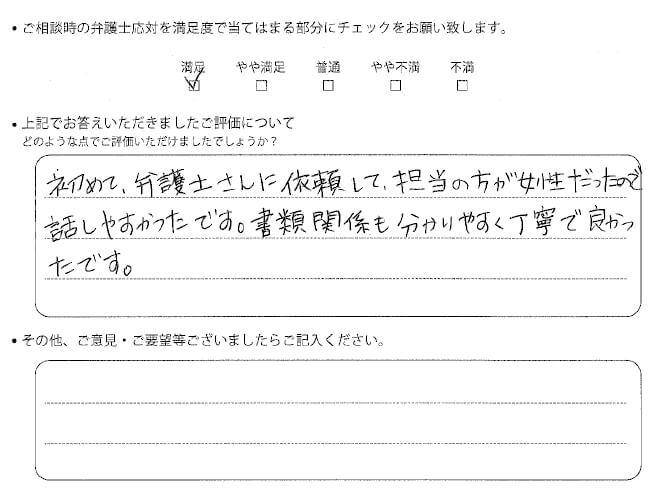 • ご相談時の弁護士応対を満足度で当てはまる部分にチェックをお願い致します。
満足 やや満足 普通 やや不満 不満
☑ □ □ □ □
• 上記でお答えいただきましたご評価について
どのような点でご評価いただけましたでしょうか？
初めて、弁護士さんに依頼して、担当の方が女性だったので
話しやすかったです。書類関係も分かりやすく丁寧で良かっ
たです。
• その他、ご意見・ご要望等ございましたらご記入ください。